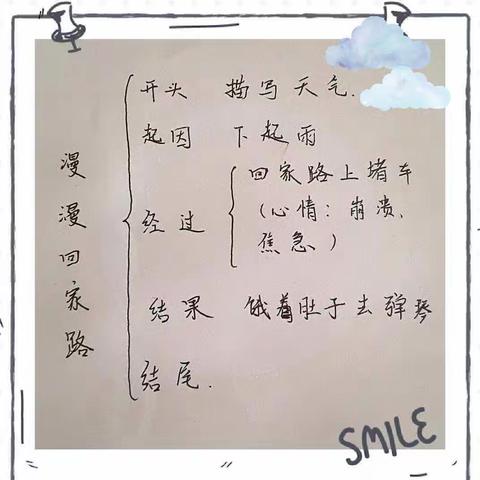 漫漫回家路
开头 描写天气.
起因 下起雨
经过 回家路上堵车
(心情：崩溃、
焦急、)
结果 饿着肚子去弹琴
结尾.
SMILE